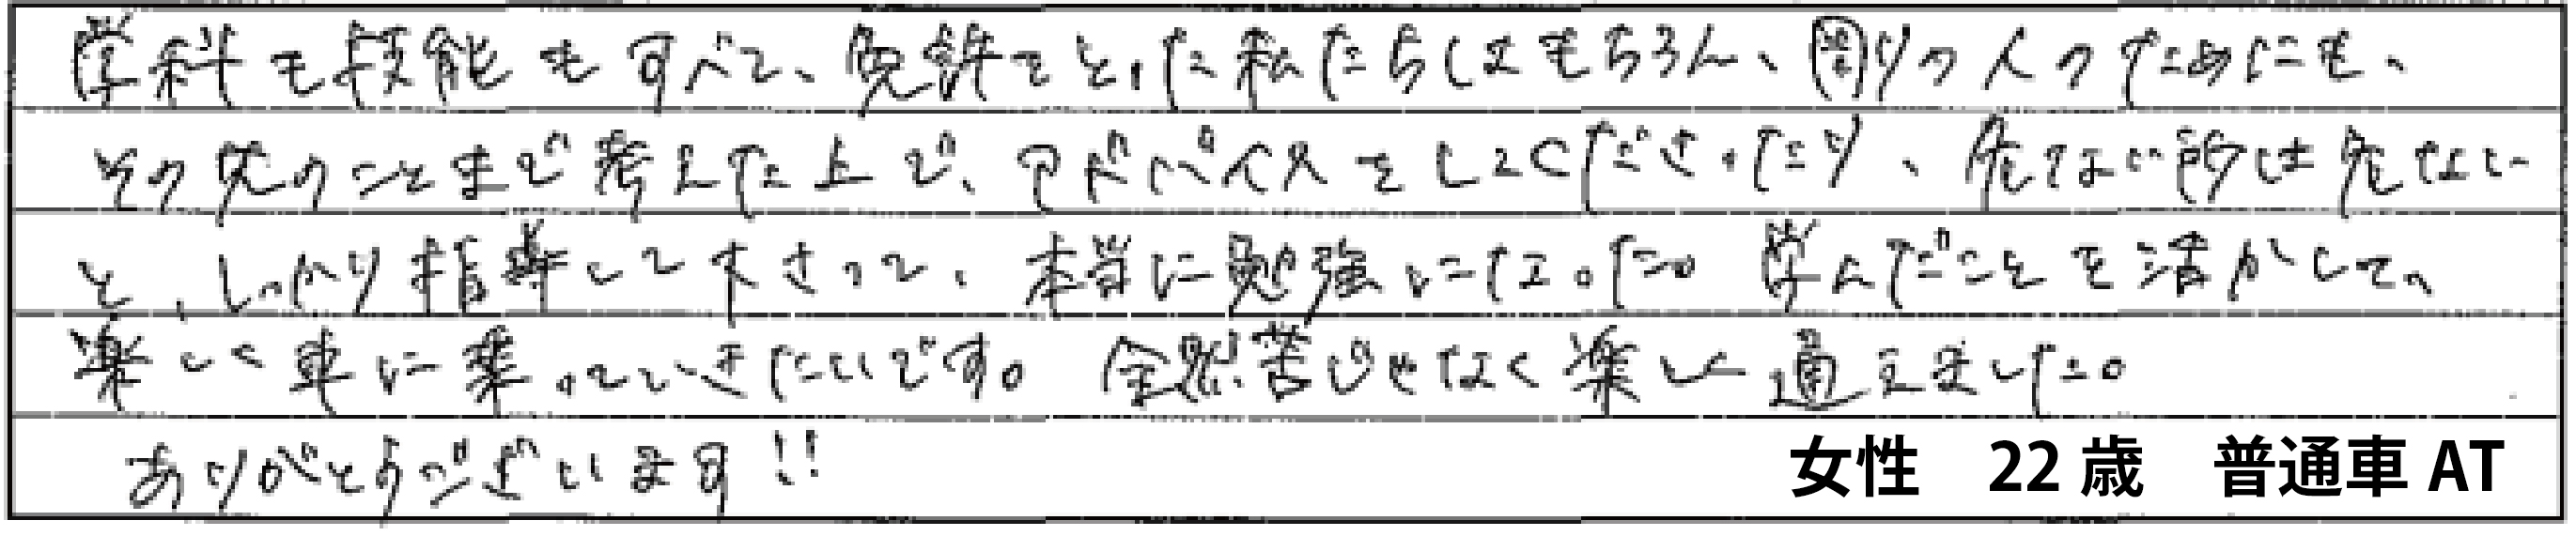 学科も技能もすべて、免許をとった私たちはもちろん、周りの人のためにも、
その先のことまで考えた上で、アドバイスをしてくださったり、危ない所は危ない
と、しっかり指導して下さって、本当に勉強になった。学んだことを活かして、
楽しく車に乗っていきたいです。全然苦じゃなく楽しく通えました。
ありがとうございます!!
女性 22歳 普通車AT